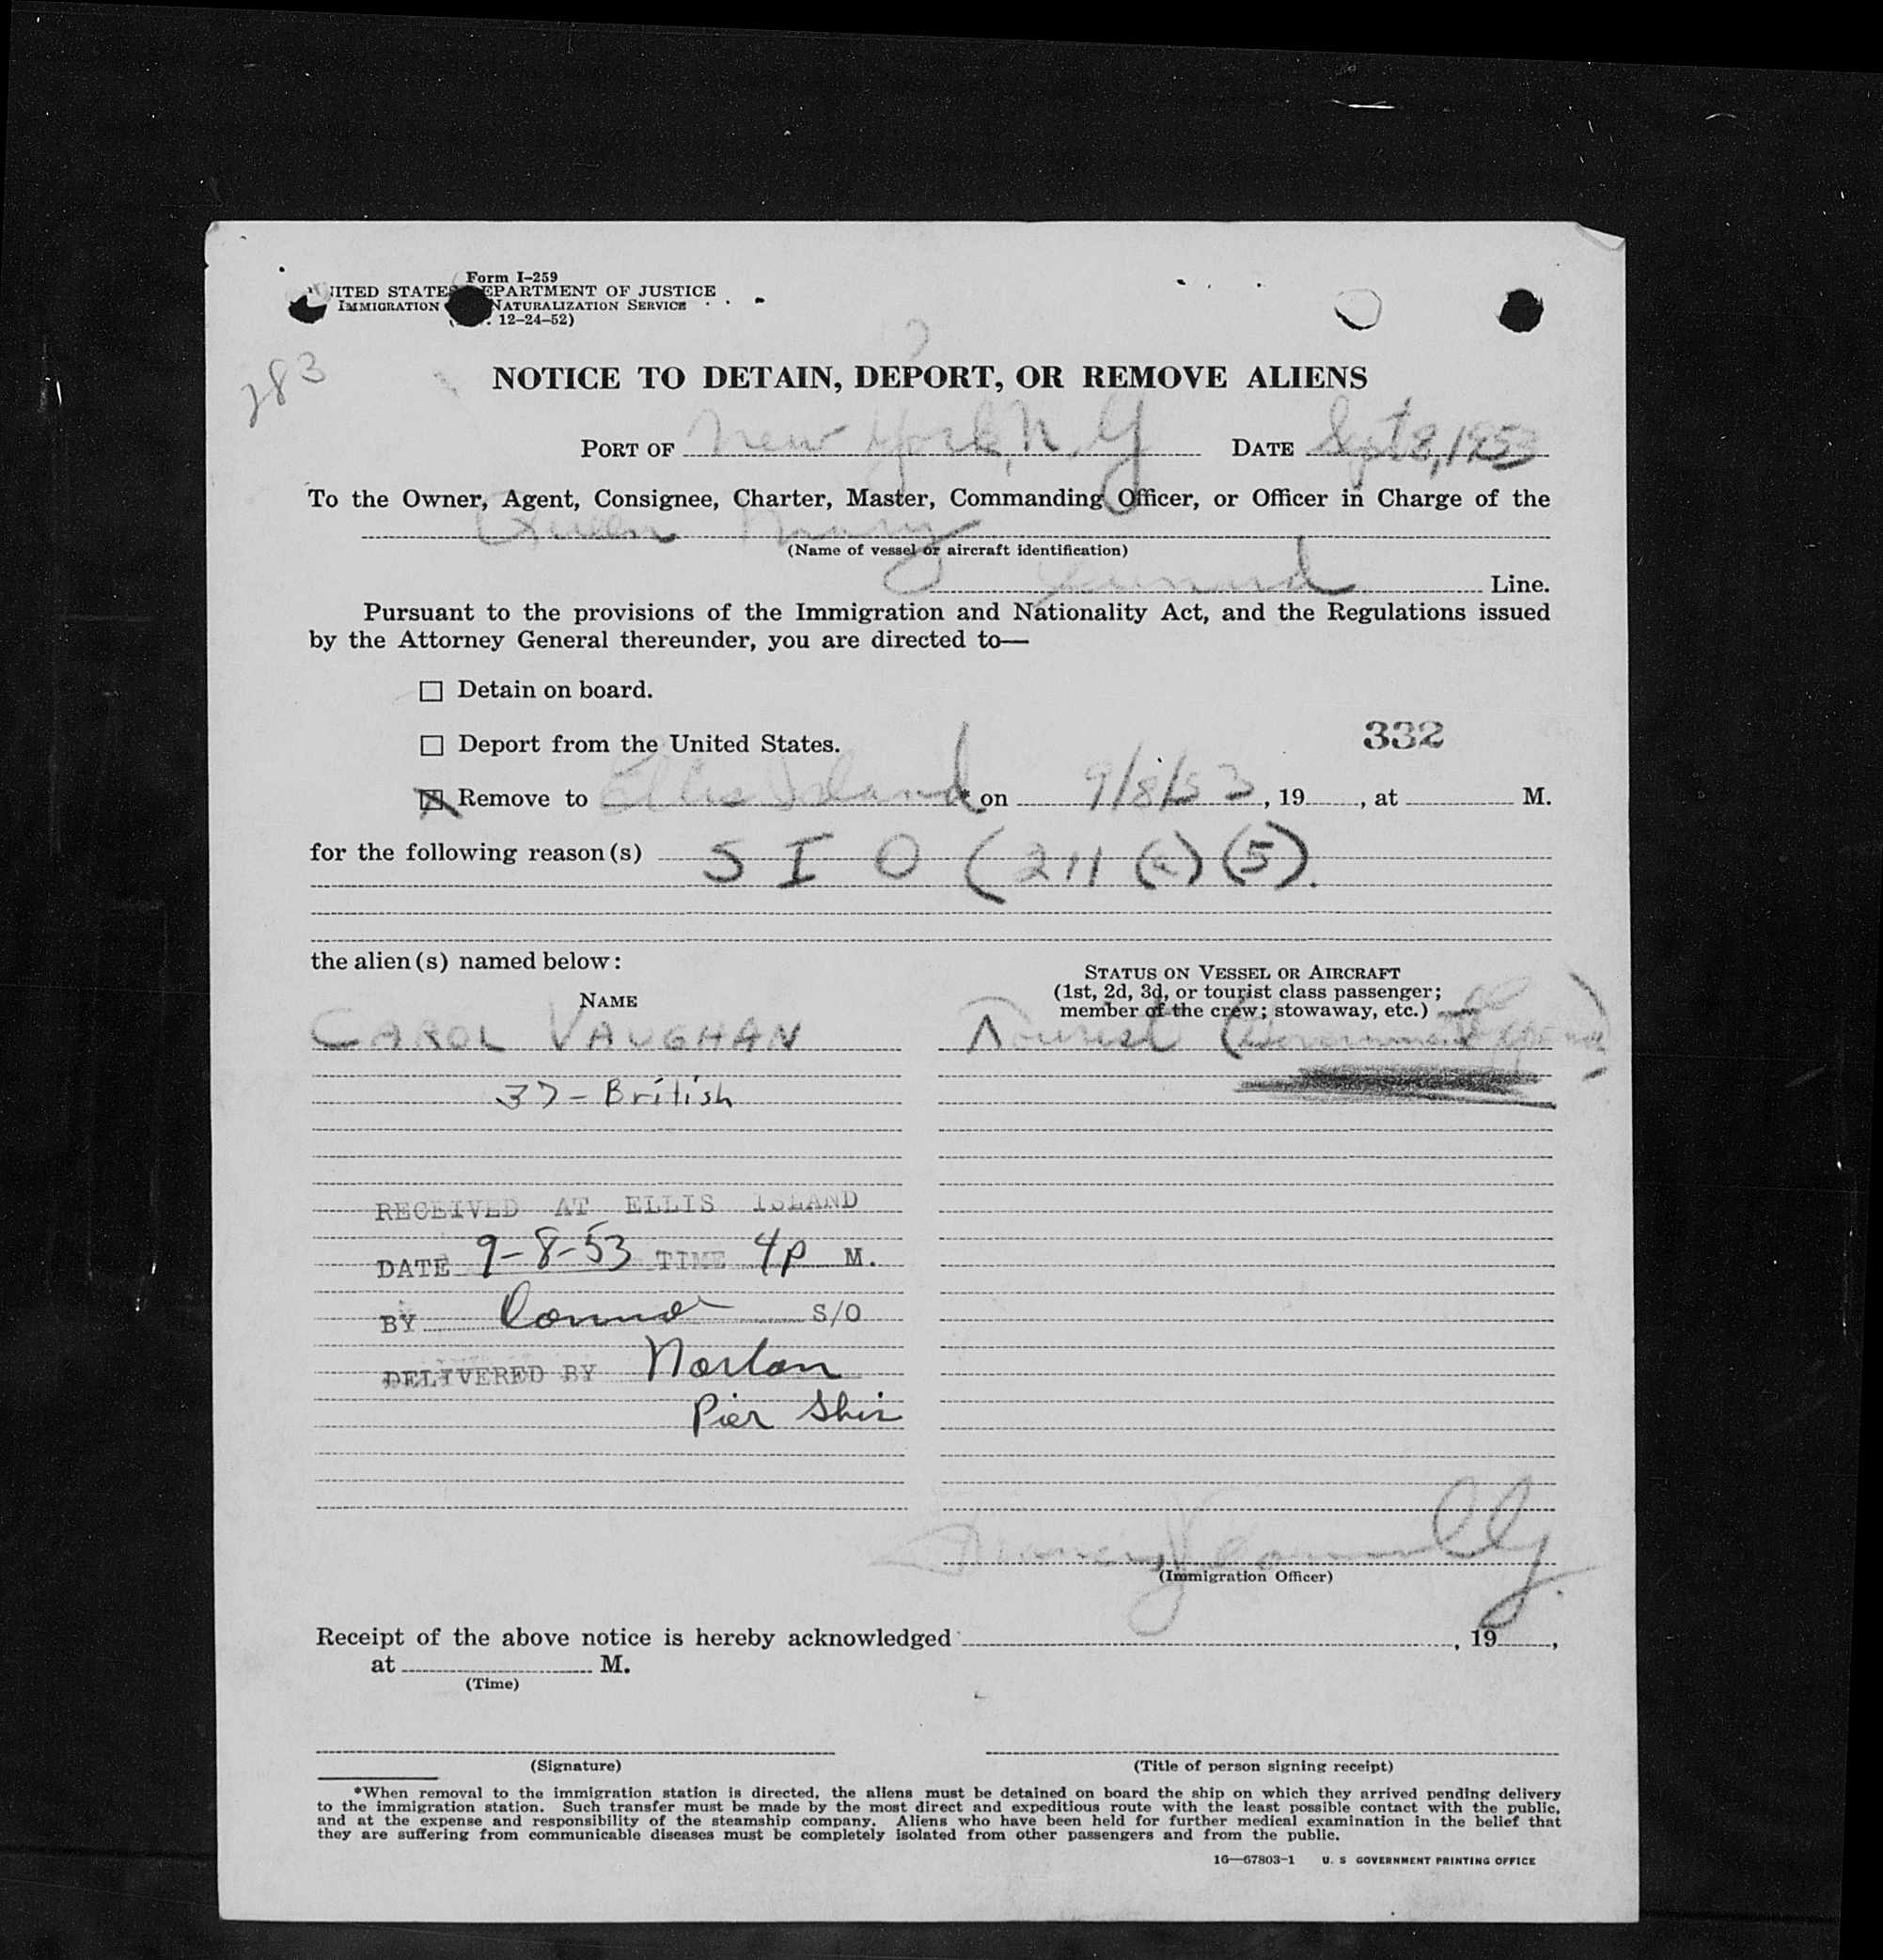 Form I-259
UNITED STATES DEPARTMENT OF JUSTICE
IMMIGRATION NATURALIZATION SERVICE
12-24-52)
283
NOTICE TO DETAIN, DEPORT, OR REMOVE ALIENS
PORT OF New York, N.Y DATE Sept 8, 1953
To the Owner, Agent, Consignee, Charter, Master, Commanding Officer, or Officer in Charge of the
Queen Mary
(Name of vessel or aircraft identification)
Cunard Line.
Pursuant to the provisions of the Immigration and Nationality Act, and the Regulations issued
by the Attorney General thereunder, you are directed to—
☐ Detain on board.
☐ Deport from the United States. 332
☒ Remove to Ellis Island * on 9/8/53, 19, at M.
for the following reason(s) S I O (211 (a) (5).
the alien(s) named below:
NAME
STATUS ON VESSEL OR AIRCRAFT
(1st, 2d, 3d, or tourist class passenger;
member of the crew; stowaway, etc.)
CAROL VAUGHAN Tourist (Government
37 - British
RECEIVED AT ELLIS ISLAND
DATE 9-8-53 TIME 4P M.
BY Connor S/O
DELIVERED BY Norton
Pier
Connolly
(Immigration Officer)
Receipt of the above notice is hereby acknowledged , 19 ,
at M.
(Time)
(Signature) (Title of person signing receipt)
*When removal to the immigration station is directed, the aliens must be detained on board the ship on which they arrived pending delivery
to the immigration station. Such transfer must be made by the most direct and expeditious route with the least possible contact with the public,
and at the expense and responsibility of the steamship company. Aliens who have been held for further medical examination in the belief that
they are suffering from communicable diseases must be completely isolated from other passengers and from the public.
16—67803-1 U. S GOVERNMENT PRINTING OFFICE